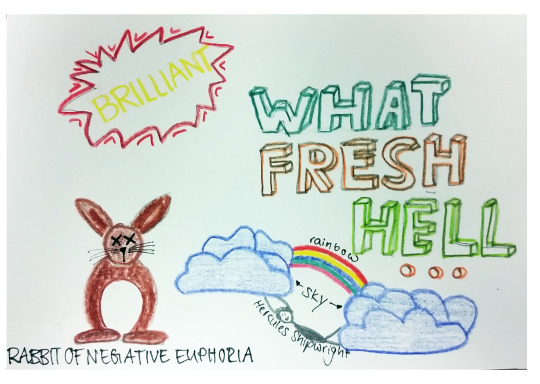 BRILLIANT
WHAT
FRESH
HELL
...
rainbow
SKY
Hercules Shipwright
RABBIT OF NEGATIVE EUPHORIA